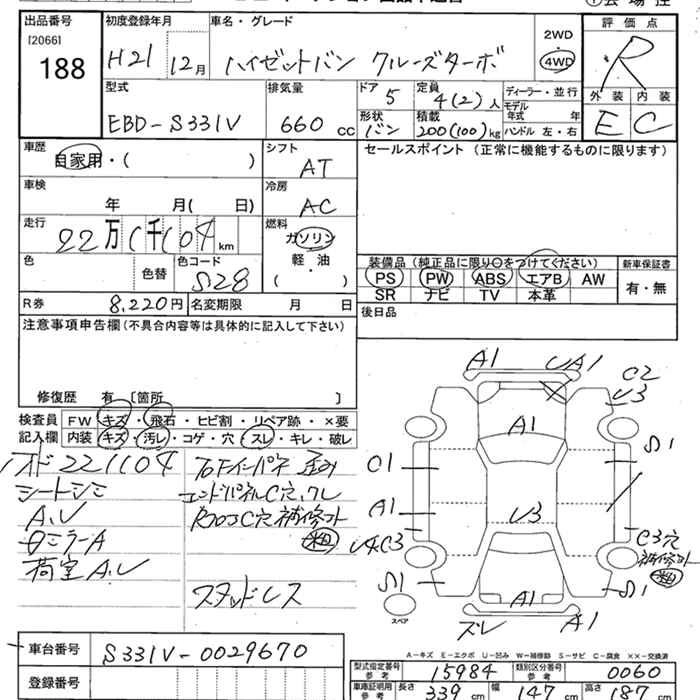 出品番号 初度登録年月 車名・グレード 評価点
[2066]
188 H21 12月 ハイゼットバン クルーズターボ 2WD 4WD R
型式 排気量 ドア 定員 ディーラー・並行 外装 内装
EBD-S331V 660 cc 5 4(2)人 モデル年式 年 E C
形状 積載 ハンドル 左・右
バン 200(100)kg
車歴 シフト セールスポイント (正常に機能するものに限ります)
自家用・( ) AT
車検 冷房
年 月( 日) AC
走行 燃料
22万1千104km ガソリン
色 色替 色コード S28 軽・油 ( )
装備品(純正品に限り○をつけてください) 新車保証書
PS PW ABS エアB AW 有・無
SR ナビ TV 本革
R券 8,220円 名変期限 月 日 後日品
注意事項申告欄(不具合内容等は具体的に記入して下さい)
修復歴 有 [箇所 ]
検査員記入欄 FW キズ・飛石・ヒビ割・リペア跡・×要
内装 キズ・汚レ・コゲ・穴・スレ・キレ・破レ
221104
シートシミ エンドパネルC穴、クレ
A,U 補修コト 粗
ミラーA
荷室A,U
スタッドレス
A1 UA1
C2
U3
A1 S1
C1
A1 U3
U4C3 C3穴
補修コト 粗
S1 A1 S1
スペア ズレ A1
A-キズ E-エクボ U-凹み W-補修跡 S-サビ C-腐食 ××-交換済
車台番号 S331V-0029670
登録番号
型式指定番号 参考 15984 類別区分番号 参考 0060
車庫証明用 参考 長さ 339cm 幅 147cm 高さ 187cm